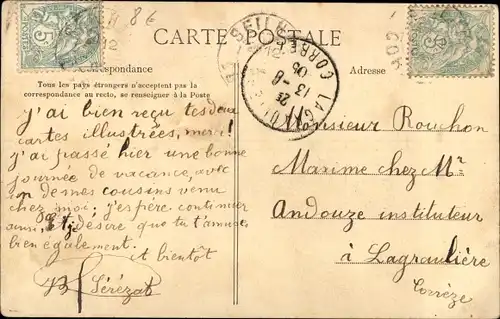 8€
CARTE POSTALE
Correspondance
Adresse
Tous les pays étrangers n'acceptent pas la
correspondance au recto, se renseigner à la Poste
SEILH
CORRÈZE
13 -8
05
J'ai bien reçu tes deux
cartes illustrées, merci!
J'ai passé hier une bonne
journée de vacance, avec
un de mes cousins venu
chez moi; j'espère continuer
ainsi, et désire que tu t'amuses
bien également.
A bientôt
Sérézat
Monsieur Rouchon
Maxime chez Mr
Andouze instituteur
à Lagraulière
Corrèze